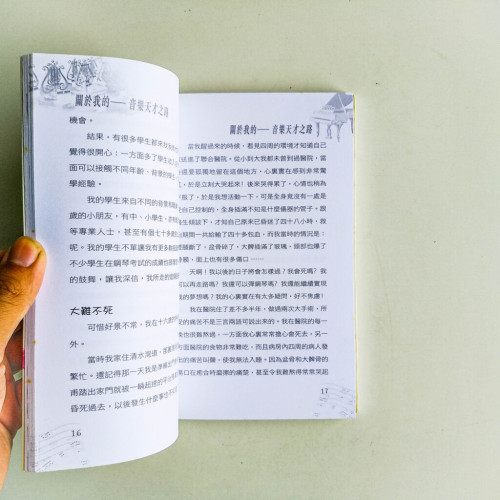 關於我的——音樂天才之路
機會。
結果，有很多學生都來找我
覺得很開心：一方面多了學生
面可以接觸不同年齡、背景的學生
學經驗。
我的學生來自不同的背景
歲的小朋友，有中、小學生，亦有
等專業人士，甚至有個七十多歲的
呢。我的學生不單讓我有更多教
不少學生在鋼琴考試的成績也
的鼓舞，讓我深信，我所走的
大難不死
可惜好景不常，我在十六歲
外。
當時我家住清水灣道，
繁忙。還記得那一天我是準備出
甫踏出家門就被一輛超速的
昏死過去，以後發生什麼事
16
關於我的——音樂天才之路
當我醒過來的時候，看見四周的環境才知道自己
送進了聯合醫院，從小到大我都未曾到過醫院，當
還要孤獨地留在這個地方，心裏實在感到非常驚
，於是立刻大哭起來！後來哭得累了，心情也稍為
了，於是我想活動一下，可是全身竟沒有一處是
自己控制的，全身插滿不知是什麼儀器的管子。跟
生傾談下，才知自己原來已昏迷了四十八小時，救
期間一共給輸了四十多包血，而我當時的情況是：
腳斷了，盆骨碎了，大髀插滿了玻璃，頭部也爆了
，面上也有很多傷口……
天啊！我以後的日子將會怎樣過？我會死嗎？我
可以再走路嗎？我還可以彈鋼琴嗎？我還能繼續實現
的夢想嗎？我的心裏實在有太多疑問，好不焦慮！
我在醫院住了差不多半年，做過兩次大手術，所
的痛苦不是三言兩語可說出來的。我在醫院的每一
也很難過。一方面我心裏常常擔心會死去，另一
面醫院的食物非常難吃，而且病房內四周的病人發
的痛苦叫聲，使我無法入睡。因為盆骨和大髀骨的
口在癒合時磨擦的痛楚，甚至令我難熬得常常哭起
17